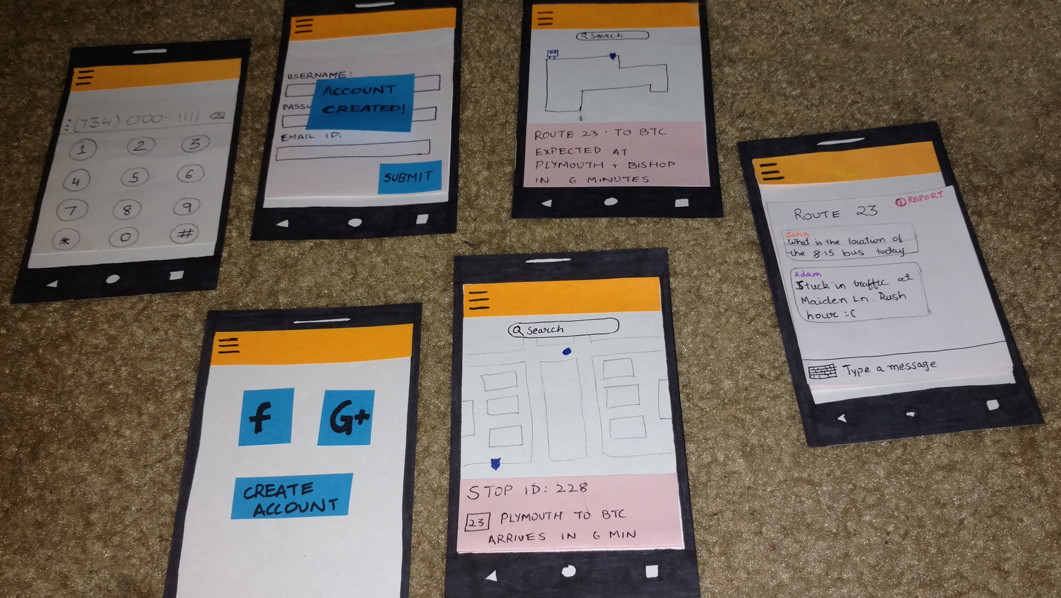 (734)-000-1111
1 2 3
4 5 6
7 8 9
* 0 #
USERNAME:
PASSW
EMAIL ID:
ACCOUNT
CREATED!
SUBMIT
Search
ROUTE 23 - TO BTC
EXPECTED AT
PLYMOUTH + BISHOP
IN 6 MINUTES
REPORT
ROUTE 23
John
What is the location of
the 8:15 bus today
Adam
Stuck in traffic at
Maiden Ln. Rush
hour :(
Type a message
f G+
CREATE
ACCOUNT
Search
STOP ID: 228
23 PLYMOUTH TO BTC
ARRIVES IN 6 MIN